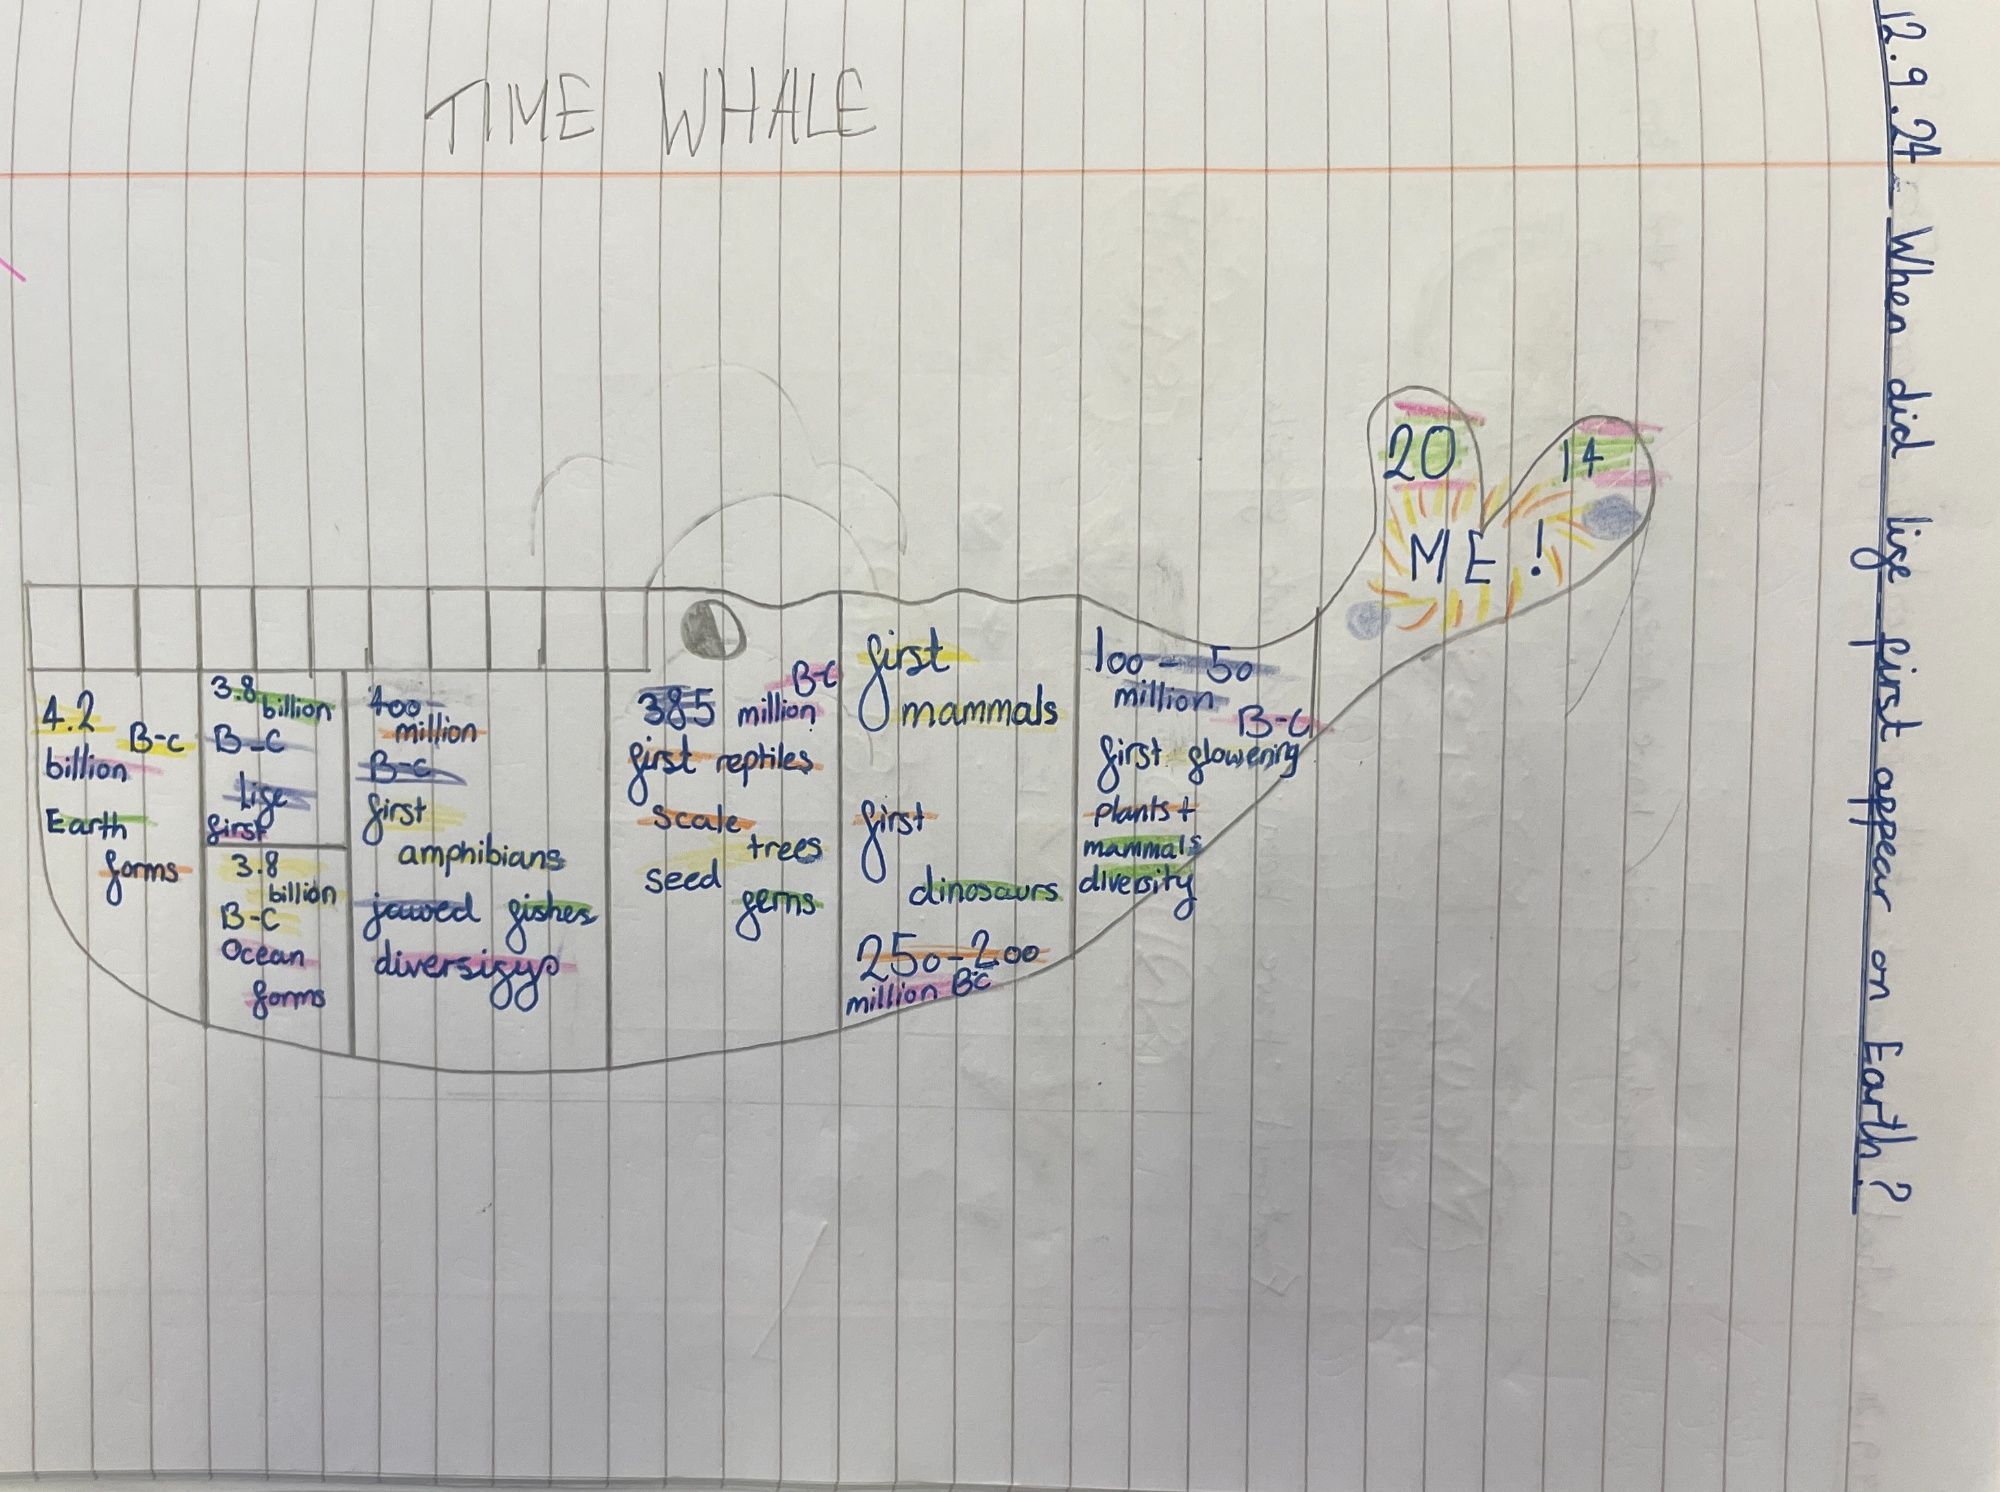 12.9.24 - When did life first appear on Earth?
TIME WHALE
4.2
B-C
billion
Earth
forms
3.8
billion
B-C
Life
first
3.8
billion
B-C
Ocean
forms
400
million
B-C
first
amphibians
jawed fishes
diversify
B-C
385 million
first reptiles
Scale
trees
seed
ferns
first
mammals
first
dinosaurs
250-200
million BC
100 - 50
million
B-C
first flowering
plants +
mammals
diversity
20 14
ME!